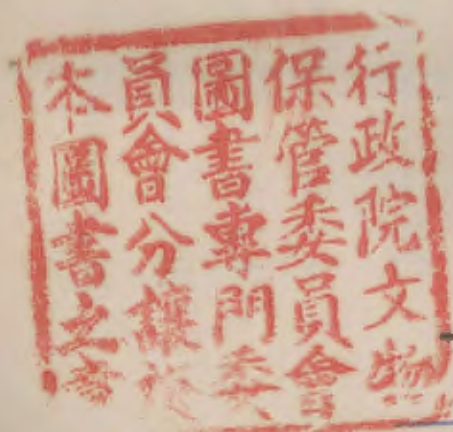 行政院文物
保管委員會
圖書專門委
員會分讓於
本圖書之章